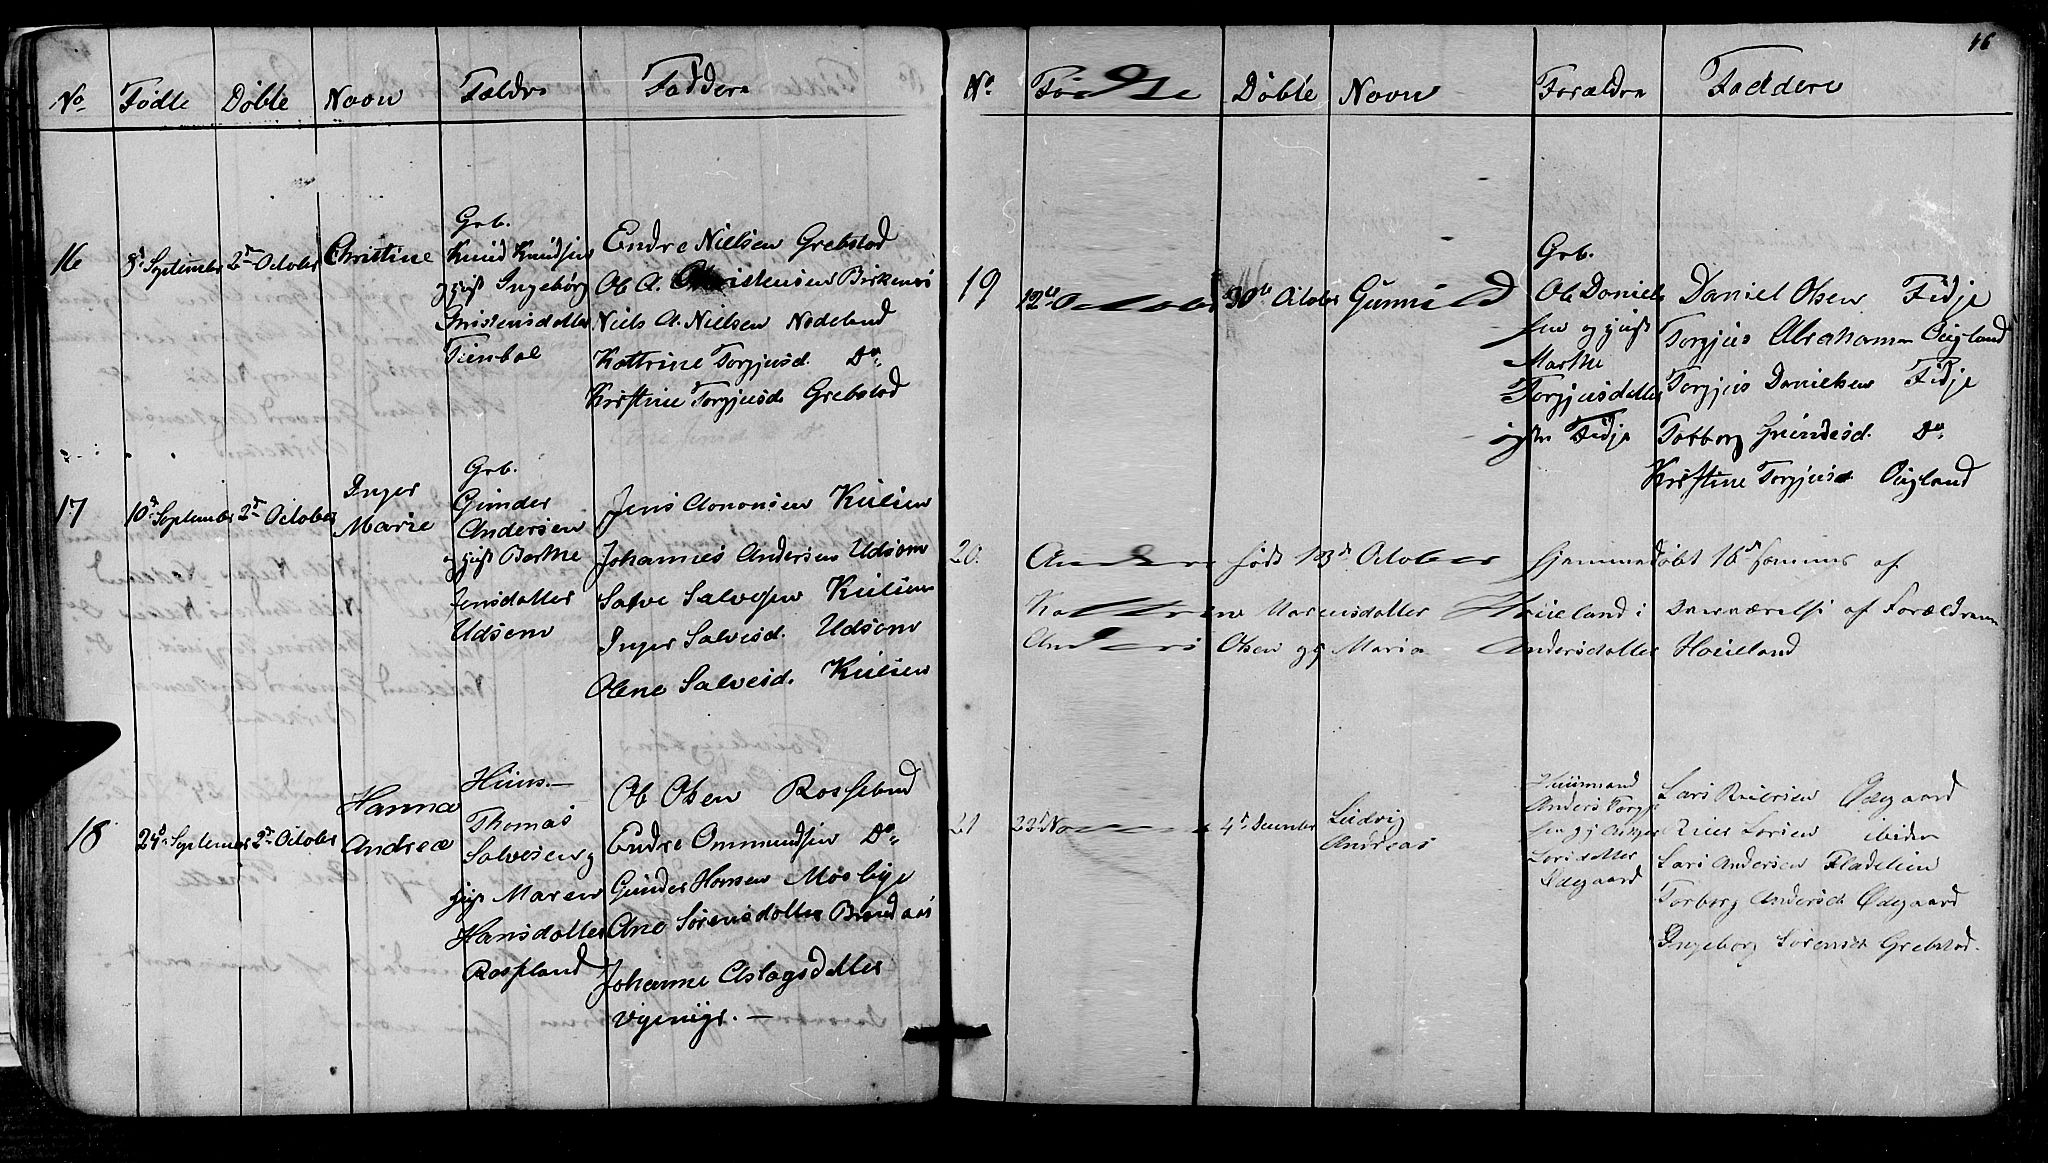 No. Fødte Døbte Navn Fældre Faddere
16 8de September 2den October Christine
Grb.
Knud Knudsen
og Hust Ingebørg
Kristensdatter
Tienbal
Endre Nielsen Grebstad
Ole A. Christensen Birkenæs
Niels A. Nielsen Nodeland
Kattrine Torgjusd. Do.
Kristine Torgjusd. Grebstad
17 10de September 2den October
Inger
Marie
Grb.
Gunder
Andersen
og Hust Berthe
Jensdatter
Udsom
Jens Aanonsen Kulien
Johannes Andersen Udsom
Salve Salvesen Kulien
Inger Salvesd. Udsom
Olene Salvesd. Kulien
18 24de September 2den October
Hanna
Andrea
Huus.—
Thomas
Salvesen og
Hust Maren
Hansdatter
Rossland
Ole Olsen Rossland
Endre Ommundsen Do.
Gunder Hansen Mosbye
Ane Sørensdatter Brendaas
Johanne Aslagsdatter
—
46
No. Fødte Døbte Navn Forældre Faddere
19 12te October 30te October Gunnild
Grb.
Ole Daniel-
sen og Hust
Marthe
Torgjusdatter
Fidje
Daniel Olsen Fidje
Torgjus Abraham Øigland
Torgjus Danielsen Fidje
Torborg Gundersd. Do.
Kristine Torgjusd. Øigland
20. Anders født 13de October hjemmedøbt 16de sammes af
Kattrine Mortensdatter Høieland i Nærværelse af Forældrene
Anders Olsen og Maria Andersdatter Høieland
21 22de Nov 4de December
Ludvig
Andreas
Huusmand
Anders Torgju-
sen og
Larsdatter
Ødegaard
Lars Reiersen Ødegaard
Reier Larsen ibiden
Lars Andersen
Torborg Andersd. Ødegaard
Ingeborg Sørensd. Grebstad.